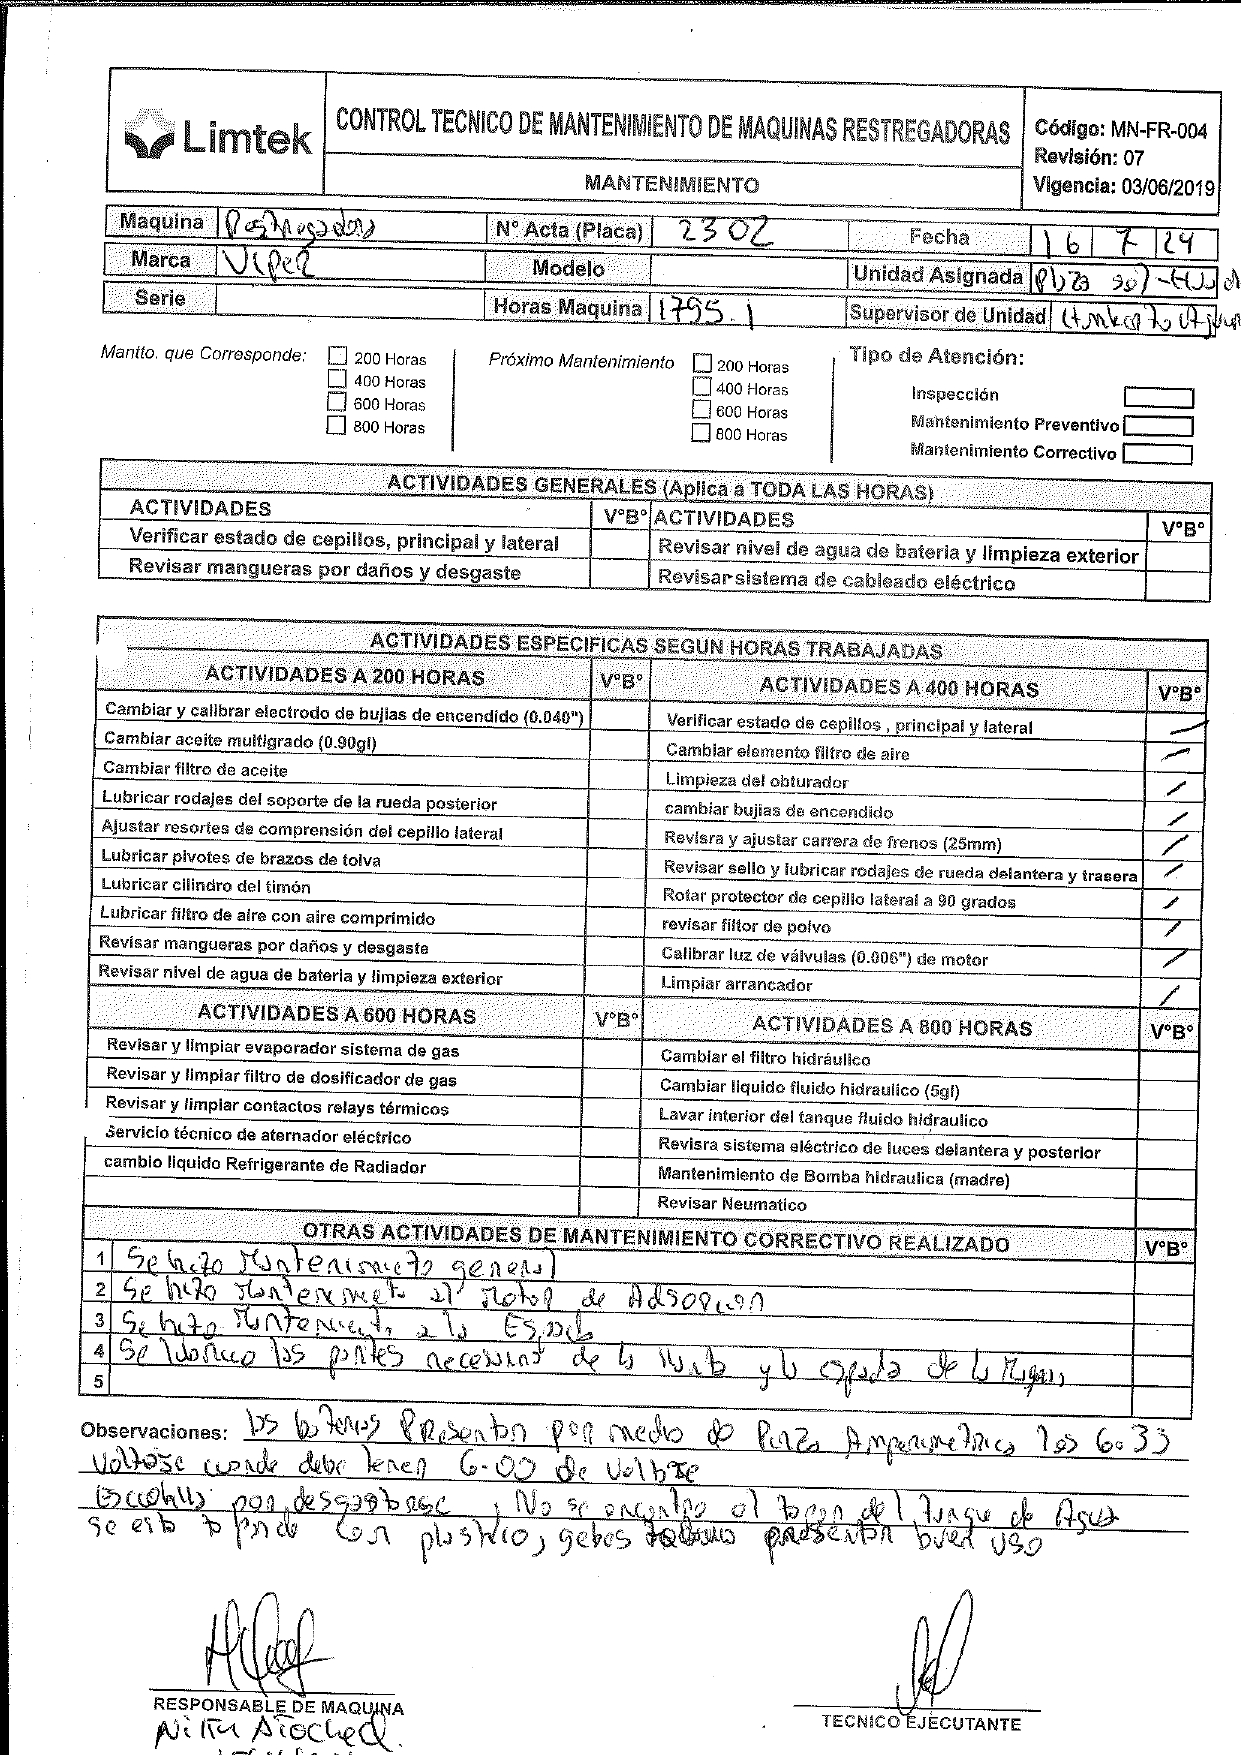 Limtek
CONTROL TECNICO DE MANTENIMIENTO DE MAQUINAS RESTREGADORAS
MANTENIMIENTO
Código: MN-FR-004
Revisión: 07
Vigencia: 03/06/2019
Maquina Restregadora Nº Acta (Placa) 2302 Fecha 16 7 24
Marca Viper Modelo Unidad Asignada Plaza sol-
Serie Horas Maquina 1795.1 Supervisor de Unidad
Mantto. que Corresponde: 200 Horas 400 Horas 600 Horas 800 Horas
Próximo Mantenimiento 200 Horas 400 Horas 600 Horas 800 Horas
Tipo de Atención:
Inspección
Mantenimiento Preventivo
Mantenimiento Correctivo
ACTIVIDADES GENERALES (Aplica a TODA LAS HORAS)
ACTIVIDADES V°B° ACTIVIDADES V°B°
Verificar estado de cepillos, principal y lateral Revisar nivel de agua de bateria y limpieza exterior
Revisar mangueras por daños y desgaste Revisar sistema de cableado eléctrico
ACTIVIDADES ESPECIFICAS SEGUN HORAS TRABAJADAS
ACTIVIDADES A 200 HORAS V°B° ACTIVIDADES A 400 HORAS V°B°
Cambiar y calibrar electrodo de bujias de encendido (0.040") Verificar estado de cepillos , principal y lateral
Cambiar aceite multigrado (0.90gl) Cambiar elemento filtro de aire
Cambiar filtro de aceite Limpieza del obturador
Lubricar rodajes del soporte de la rueda posterior cambiar bujias de encendido
Ajustar resortes de comprensión del cepillo lateral Revisra y ajustar carrera de frenos (25mm)
Lubricar pivotes de brazos de tolva Revisar sello y lubricar rodajes de rueda delantera y trasera
Lubricar cilindro del timón Rotar protector de cepillo lateral a 90 grados
Lubricar filtro de aire con aire comprimido revisar filtor de polvo
Revisar mangueras por daños y desgaste Calibrar luz de válvulas (0.006") de motor
Revisar nivel de agua de bateria y limpieza exterior Limpiar arrancador
ACTIVIDADES A 600 HORAS V°B° ACTIVIDADES A 800 HORAS V°B°
Revisar y limpiar evaporador sistema de gas Cambiar el filtro hidráulico
Revisar y limpiar filtro de dosificador de gas Cambiar liquido fluido hidraulico (5gl)
Revisar y limpiar contactos relays térmicos Lavar interior del tanque fluido hidraulico
Servicio técnico de aternador eléctrico Revisra sistema eléctrico de luces delantera y posterior
cambio liquido Refrigerante de Radiador Mantenimiento de Bomba hidraulica (madre)
Revisar Neumatico
OTRAS ACTIVIDADES DE MANTENIMIENTO CORRECTIVO REALIZADO V°B°
1 Se hizo Mantenimieto general
2 Se hizo Mantenimieto al Motor de Adsorcion
3 Se hizo Mantenimieto a la
4 Se lubrico las partes necesarias de la y la de la
5
Observaciones: las baterias Presentan por medio de Pinza Amperimetrica los 6.33
Voltaje donde debe tener 6.00 de Voltaje
por desgastarse , No se encontro el tapon del tanque de Agua
se esta tapando con plastico, presentan buen uso
RESPONSABLE DE MAQUINA
TECNICO EJECUTANTE